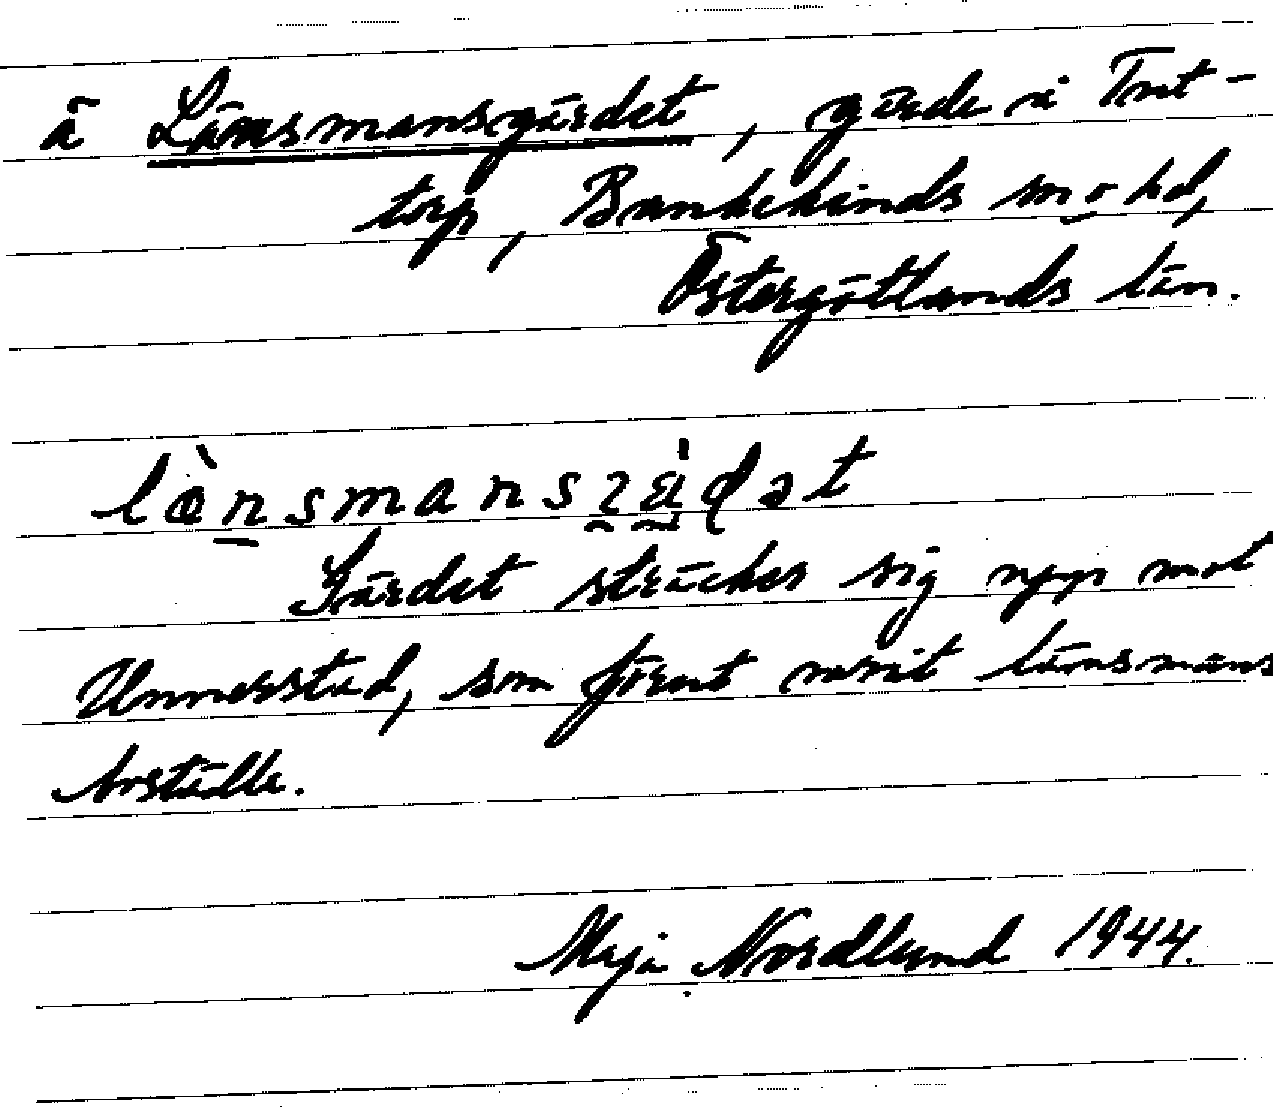 ā Länsmansgärdet, gärde i Tut-
torp, Bankekinds sn o hd,
Östergötlands län.
lànsmans
Gärdet sträcker sig upp mot
Unnerstad, som förut varit länsmans
boställe.
Maja Nordlund 1944.